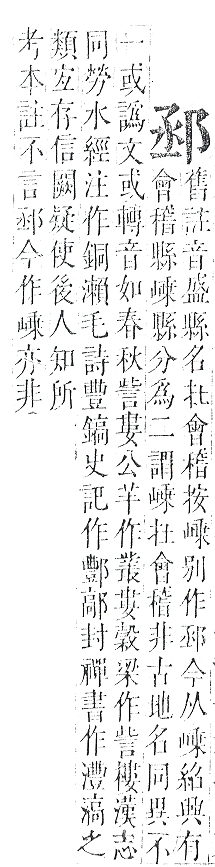 舊註音盛縣名在會稽按嵊別作今从嵊紹興有
會稽縣嵊縣分爲二謂嵊在會稽非古地名同異不
一或譌文或轉音如春秋訾婁公羊作叢婁穀梁作訾樓漢志
同勞水經注作銅瀨毛詩豐鎬史記作酆鄗封禪書作灃滈之
類宐存信闕疑使後人知所
考本註不言今作嵊亦非